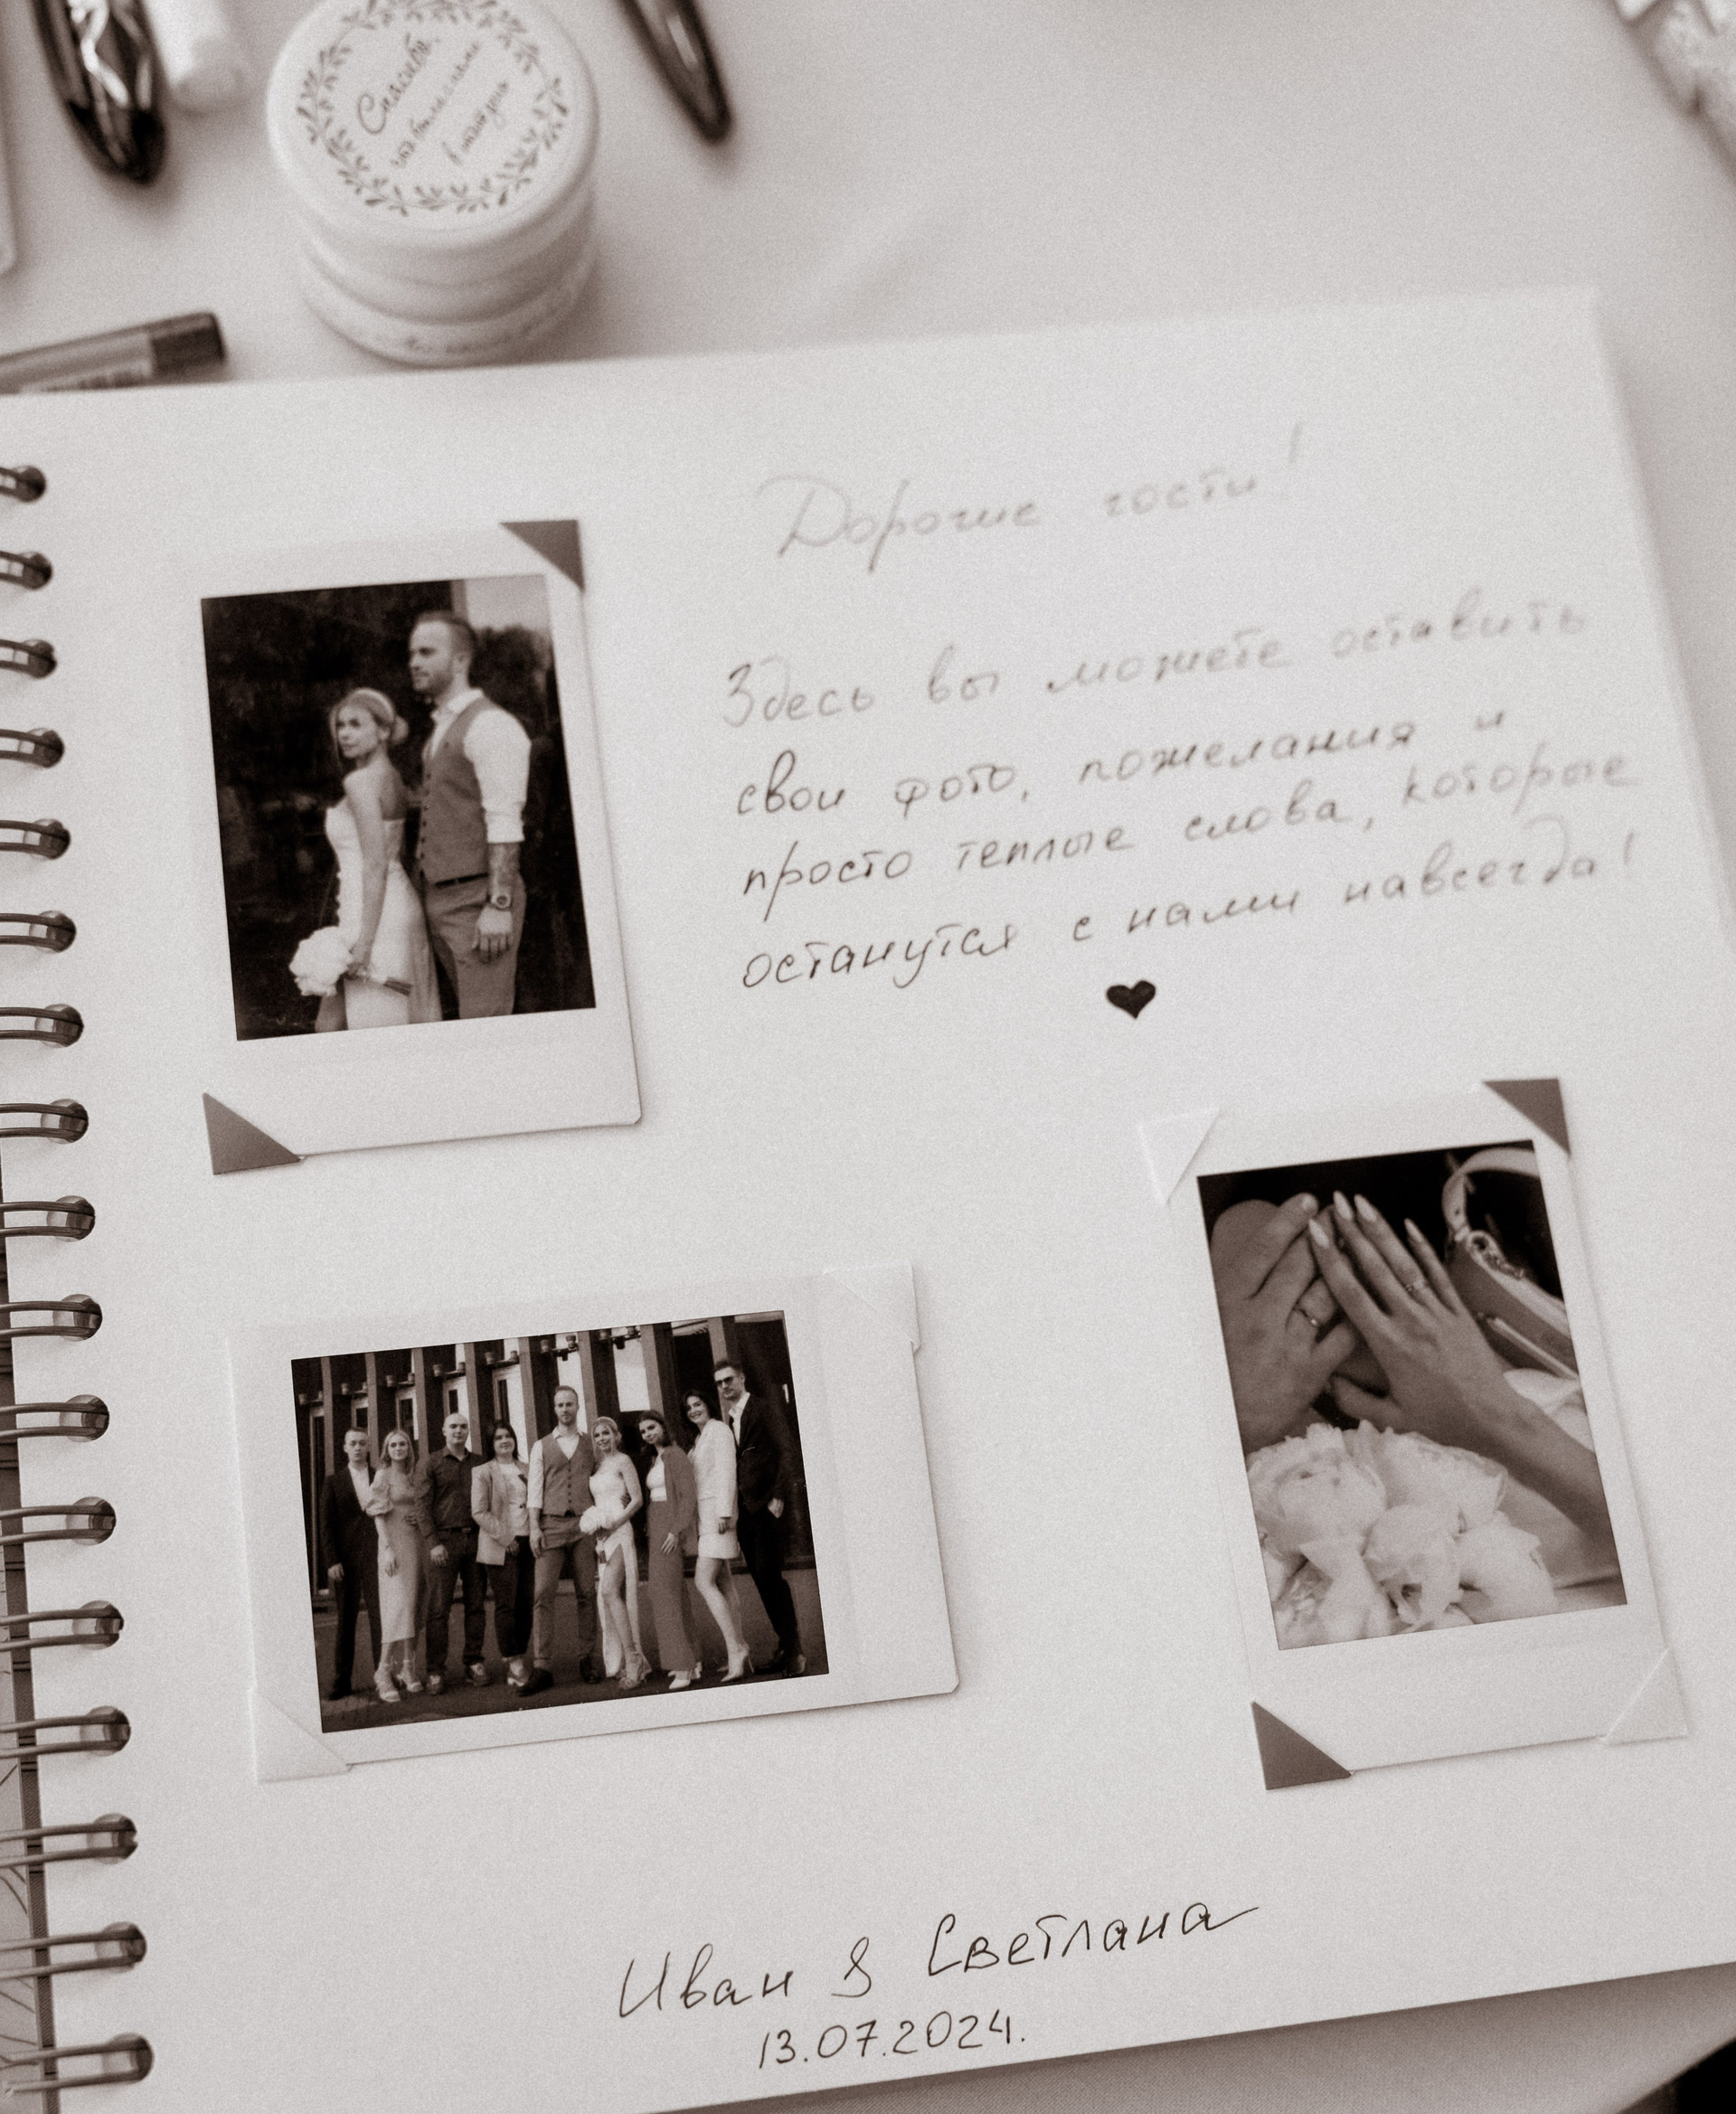 Спасибо,
что были с нами
в этот день
Дорогие гости!
Здесь вы можете оставить
свои фото, пожелания и
просто теплые слова, которые
останутся с нами навсегда!
Иван & Светлана
13.07.2024.